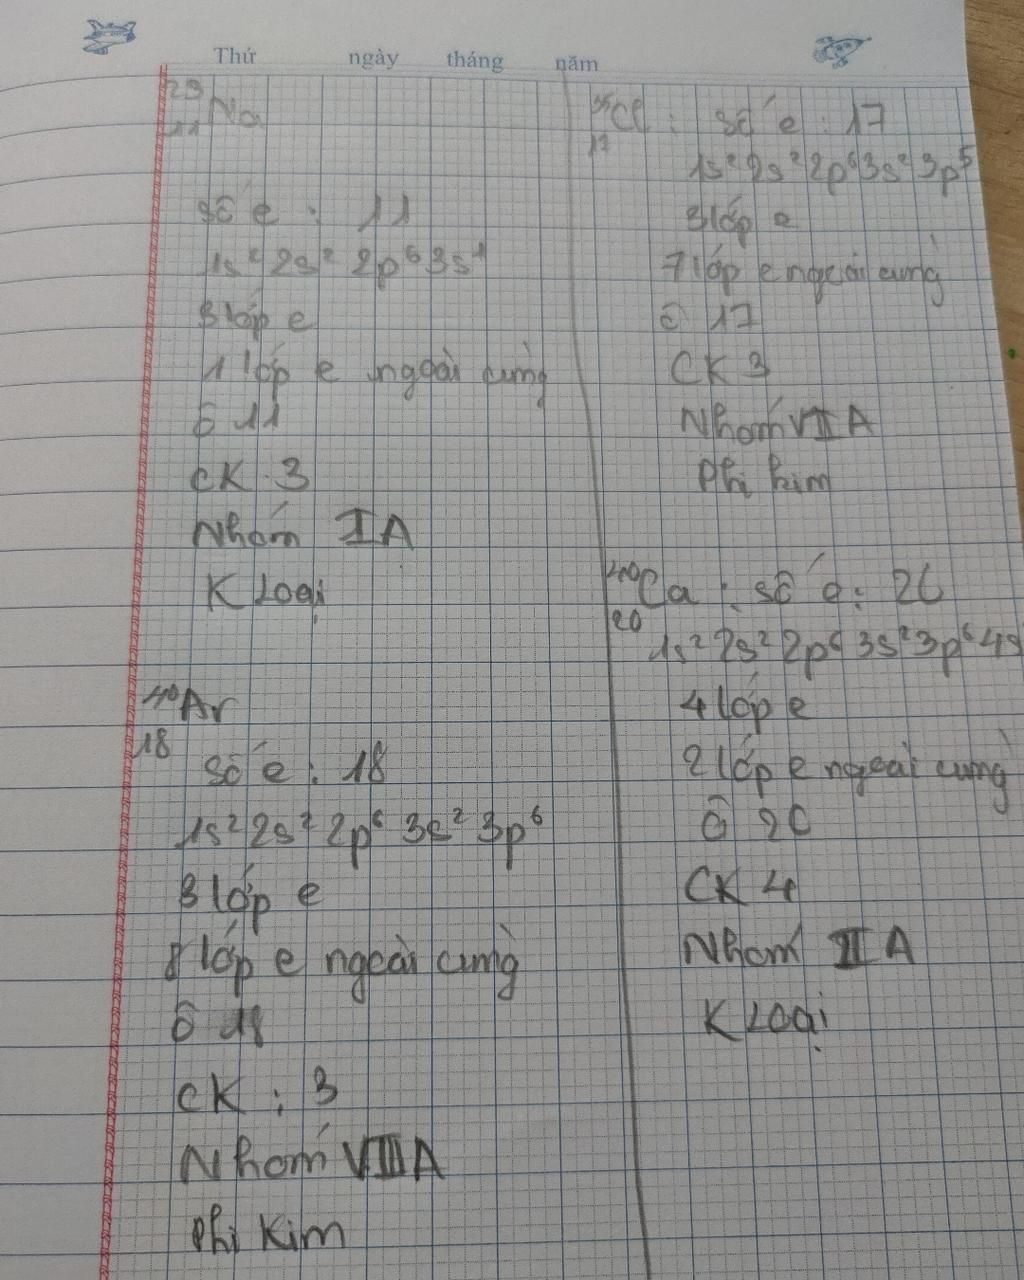 Thứ ngày tháng năm
23
11 Na
số e : 11
1s² 2s² 2p⁶ 3s¹
3 lớp e
1 lớp e ngoài cùng
ô 11
CK : 3
Nhóm IA
K Loại
40
18 Ar
số e : 18
1s² 2s² 2p⁶ 3s² 3p⁶
3 lớp e
8 lớp e ngoài cùng
ô 18
CK : 3
Nhóm VIIIA
Phi Kim
17 Cl : số e : 17
1s² 2s² 2p⁶ 3s² 3p⁵
3 lớp e
7 lớp e ngoài cùng
ô 17
CK 3
Nhóm VIIA
Phi kim
40
20 Ca : số e : 20
1s² 2s² 2p⁶ 3s² 3p⁶ 4s
4 lớp e
2 lớp e ngoài cùng
Ô 20
CK 4
Nhóm IIA
K Loại